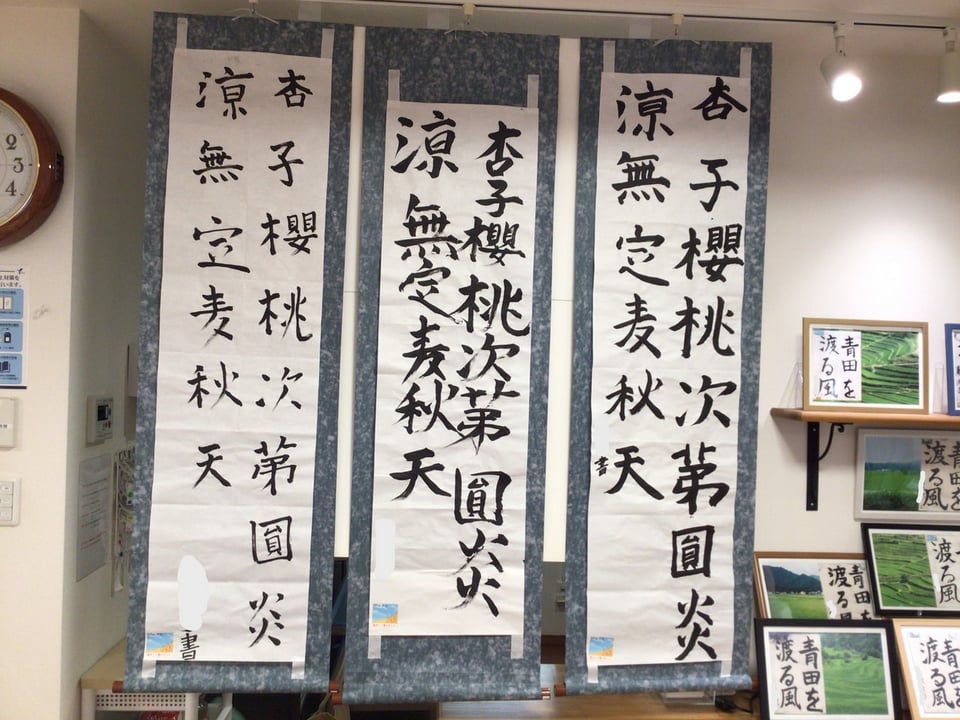 杏子櫻桃次第圓炎
涼無定麦秋天
書
杏子櫻桃次第圓炎
涼無定麦秋天
杏子櫻桃次第圓炎
涼無定麦秋天
書
青田を
渡る風
青田を
渡る風
青田を
渡る風
青田を
渡る風
青田を
渡る風
青田を
渡る風
2
3
4